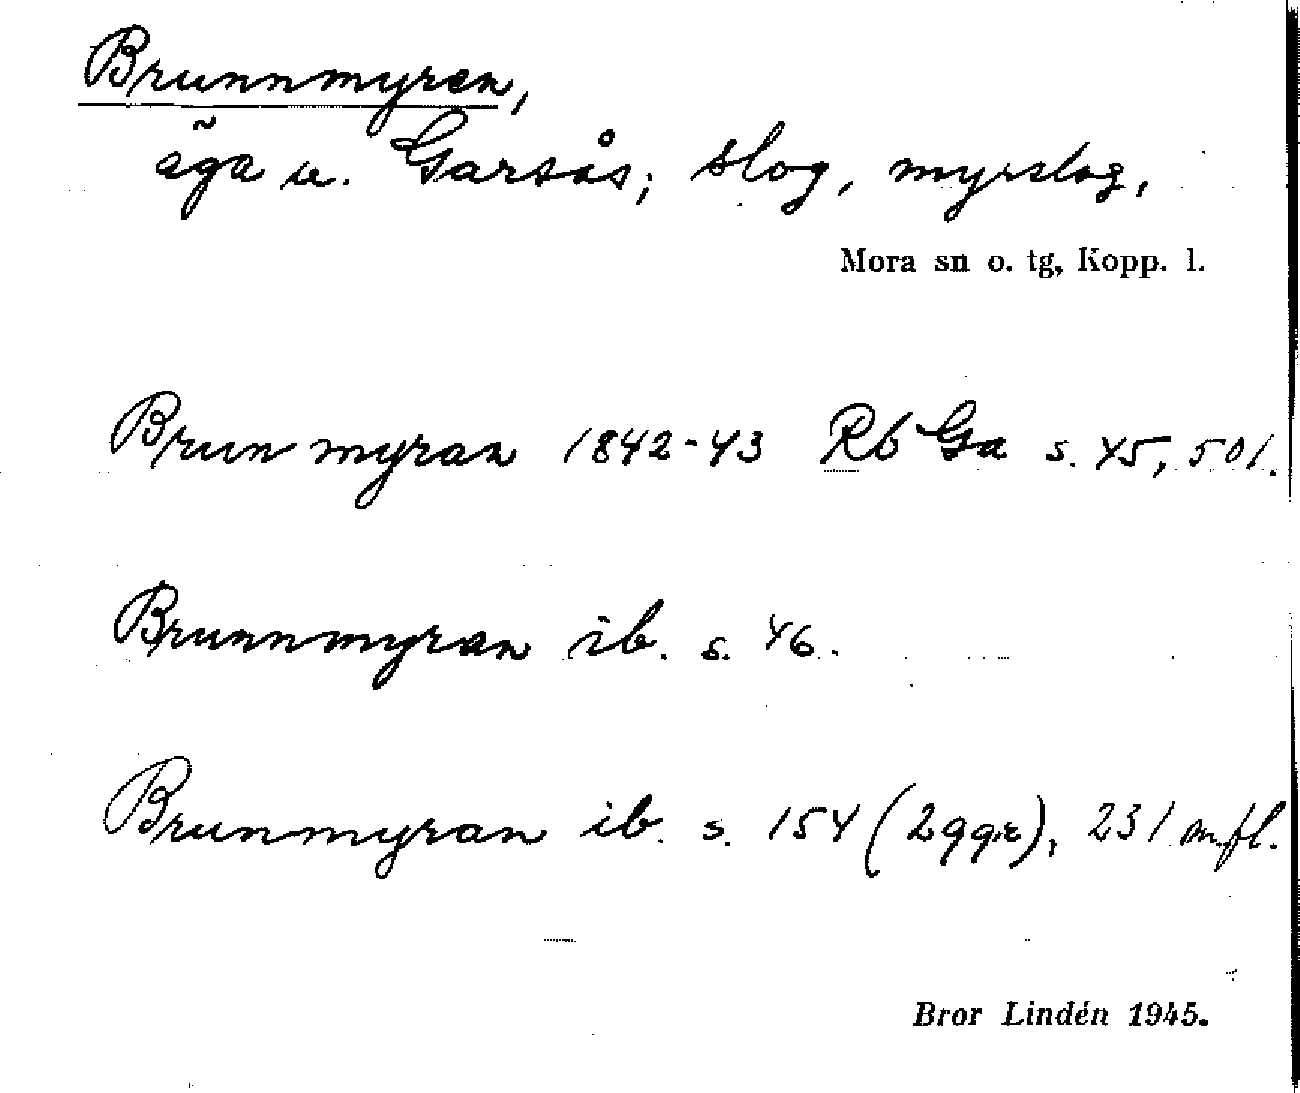 Brunnmyren,
äga u. Garsås; slog, myrslog,
Mora sn o. tg, Kopp. l.
Brun myran 1842-43 Rb Ga s. 45, 501.
Brunnmyran ib. s. 46.
Brunmyran ib. s. 154 (2 ggr), 231 m.fl.
Bror Lindén 1945.